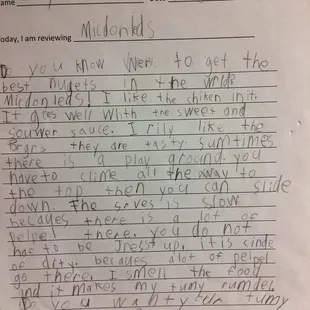 ame
Date
oday, I am reviewing Micdonleds
Do you know wer to get the
best nugets in the wrld
Micdonleds! I like the chiken in it.
It gos well whith the sweet and
souwer sauce. I rily like the
brgrs they are tasty. sumtimes
there is a play around. you
have to clime all the away to
the top then you can slide
down. The serves is slow
becaues there is a lot of
pelpel there. you do not
hae to be dresst up. it is cinde
of dity. becaues alot of pelpel
go there. I smell the food
and it makes my tumy rumdel.
Do you want your tumy